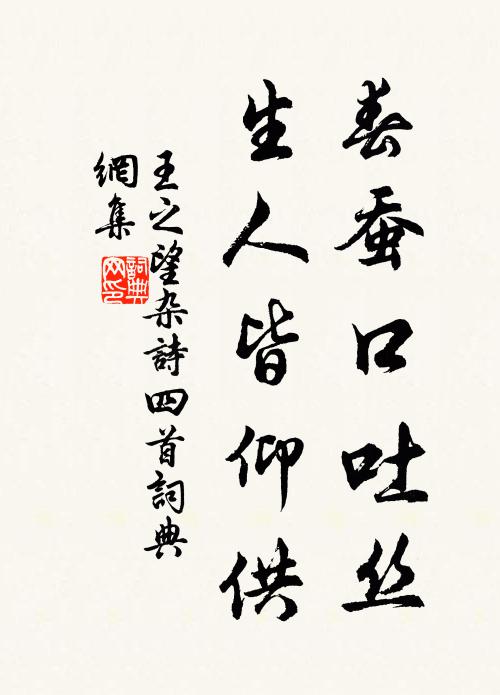 春蚕口吐丝
生人皆仰供
王之望杂詩四首詞典
網集
詞典
网印